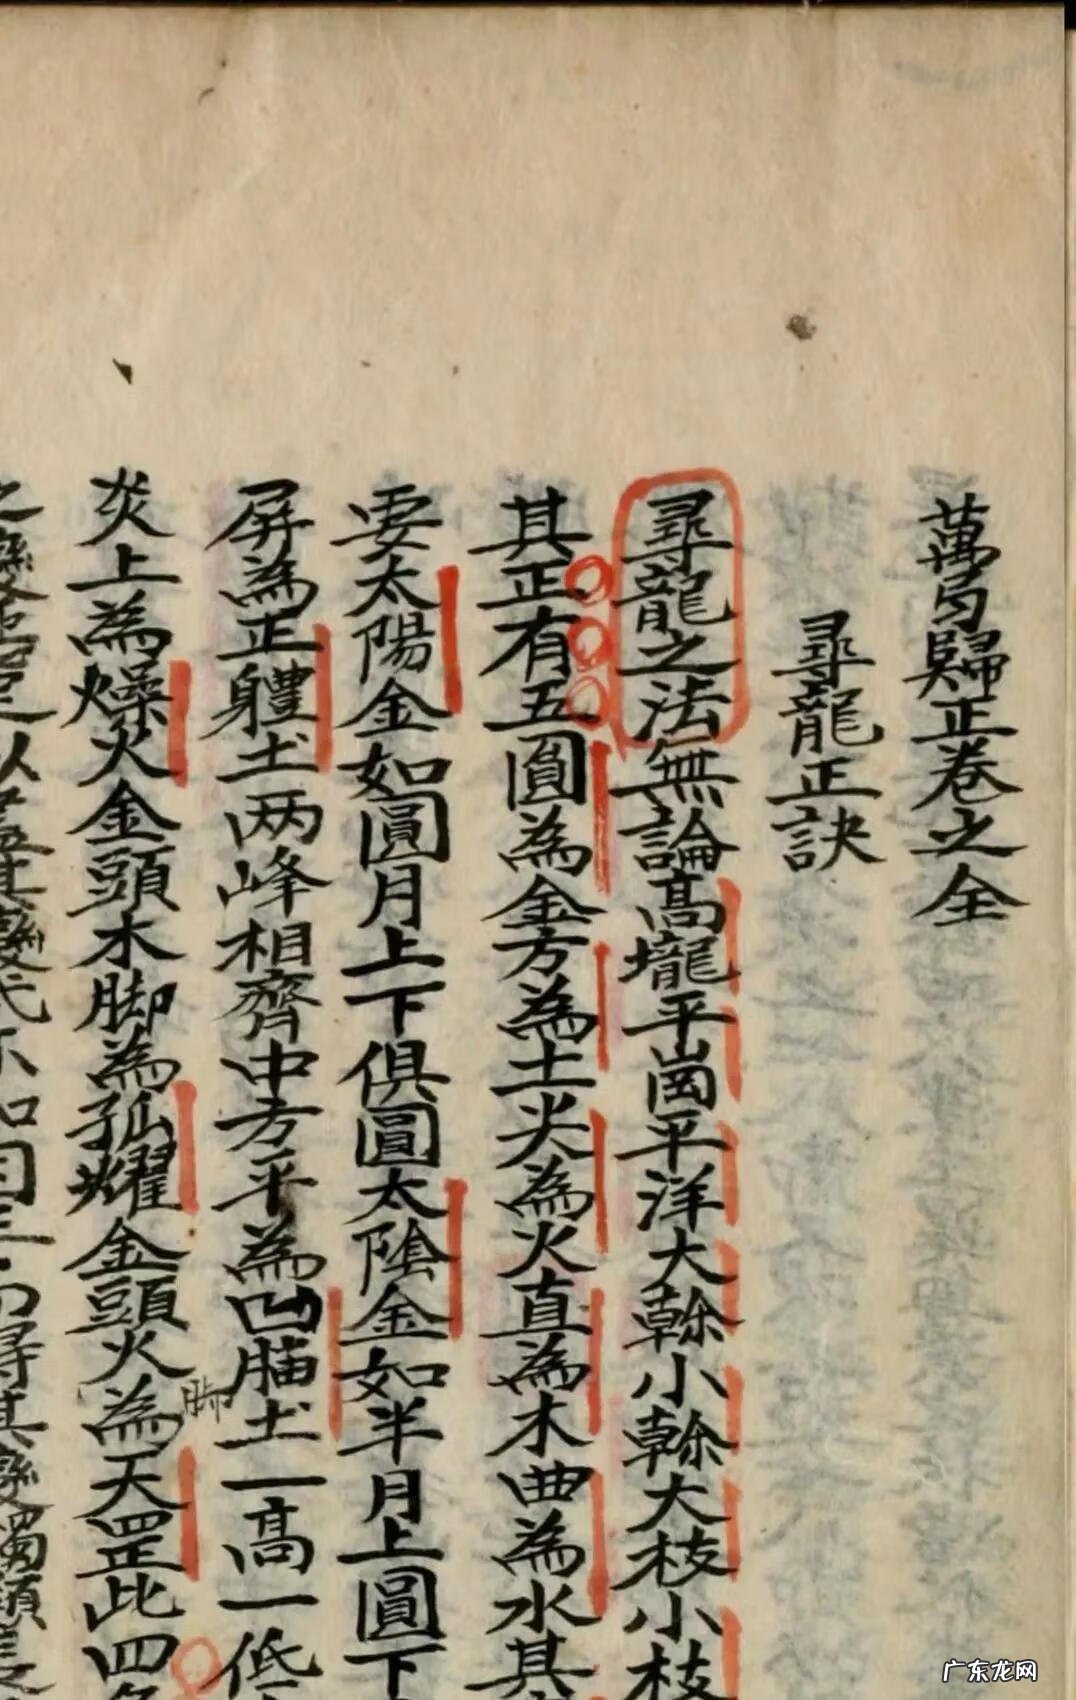 萬句歸正卷之全
尋龍正訣
尋龍之法無論髙壠平崗平洋大幹小幹大枝小枝
其正有五圓為金方為土尖為火直為木曲為水其
要太陽金如圓月上下俱圓太陰金如半月上圓下
屏為正體土两峰相齊中方平為凹腦土一髙一低
炎上為燥火金頭木脚為孤耀金頭火為天罡此四
脚
廣东龙网